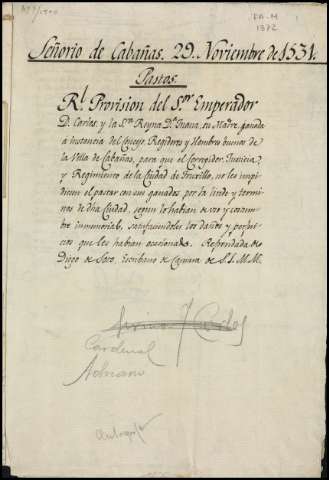 FR-M
1372
Señorio de Cabañas. 29. Noviembre de 1531.
Pastos.
Rl. Provision del Sor. Emperador
D. Carlos, y la Sra. Reyna Da. Juana, su Madre, ganada
á instancia del Concejo, Regidores y Hombres buenos de
la Villa de Cabañas, para que el Corregidor, Justicia,
y Regimiento de la Ciudad de Truxillo, no les impi-
diesen el pastar con sus ganados por la linde y termi-
nos de dha. Ciudad, segun lo habian de uso y costum-
bre inmemorial, satisfaciendoles los daños y perjui-
cios que les habian ocasionado. Refrendada de
Diego de Soto, Escribano de Camara de S.S. M.M.
Cardenal
Adriano
Autografo